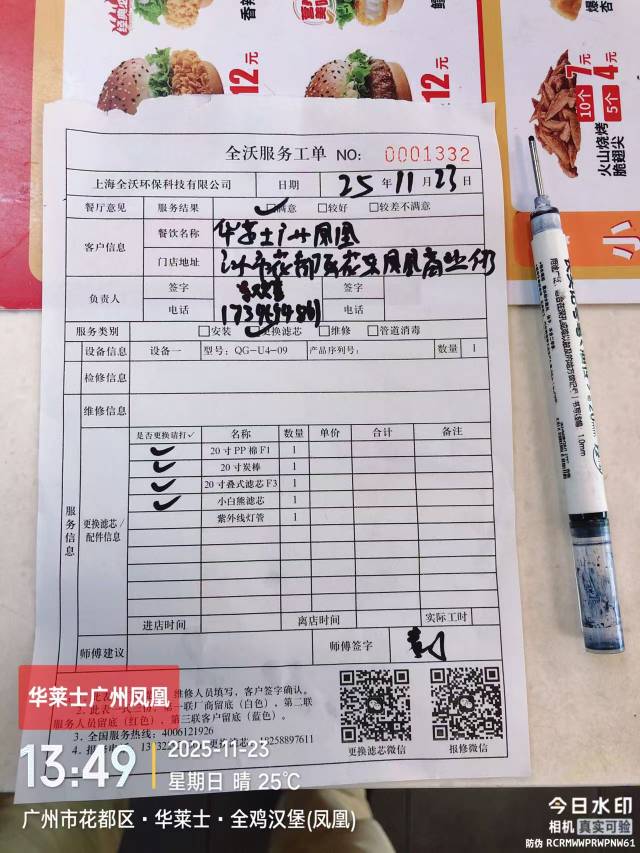 12元
12元
10个7元
5个4元
火山烧烤
脆翅尖
小
全沃服务工单 NO: 0001332
上海全沃环保科技有限公司 日期 25年11月23日
餐厅意见 服务结果 ✓ □满意 □较好 □较差不满意
客户信息 餐饮名称 华莱士广州凤凰
门店地址
负责人 签字 签字
电话 电话
服务类别 □安装 ✓更换滤芯 □维修 □管道消毒
设备信息 设备一 型号: QG-U4-09 产品序列号: 数量 1
检修信息
维修信息
服务信息
更换滤芯/配件信息
是否更换请打✓ 名称 数量 单价 合计 备注
✓ 20寸PP棉F1 1
✓ 20寸炭棒 1
✓ 20寸叠式滤芯F3 1
✓ 小白熊滤芯 1
紫外线灯管 1
进店时间 离店时间 实际工时
师傅建议 师傅签字
维修人员填写，客户签字确认。
2. 此表一式三份，第一联厂商留底（白色），第二联
服务人员留底（红色），第三联客户留底（蓝色）。
3. 全国服务热线: 4006121926
18258897611
更换滤芯微信 报修微信
华莱士广州凤凰
13:49 2025-11-23
星期日 晴 25℃
广州市花都区·华莱士·全鸡汉堡(凤凰)
今日水印
相机 真实可验
防伪 RCRMWWPRWPNW61